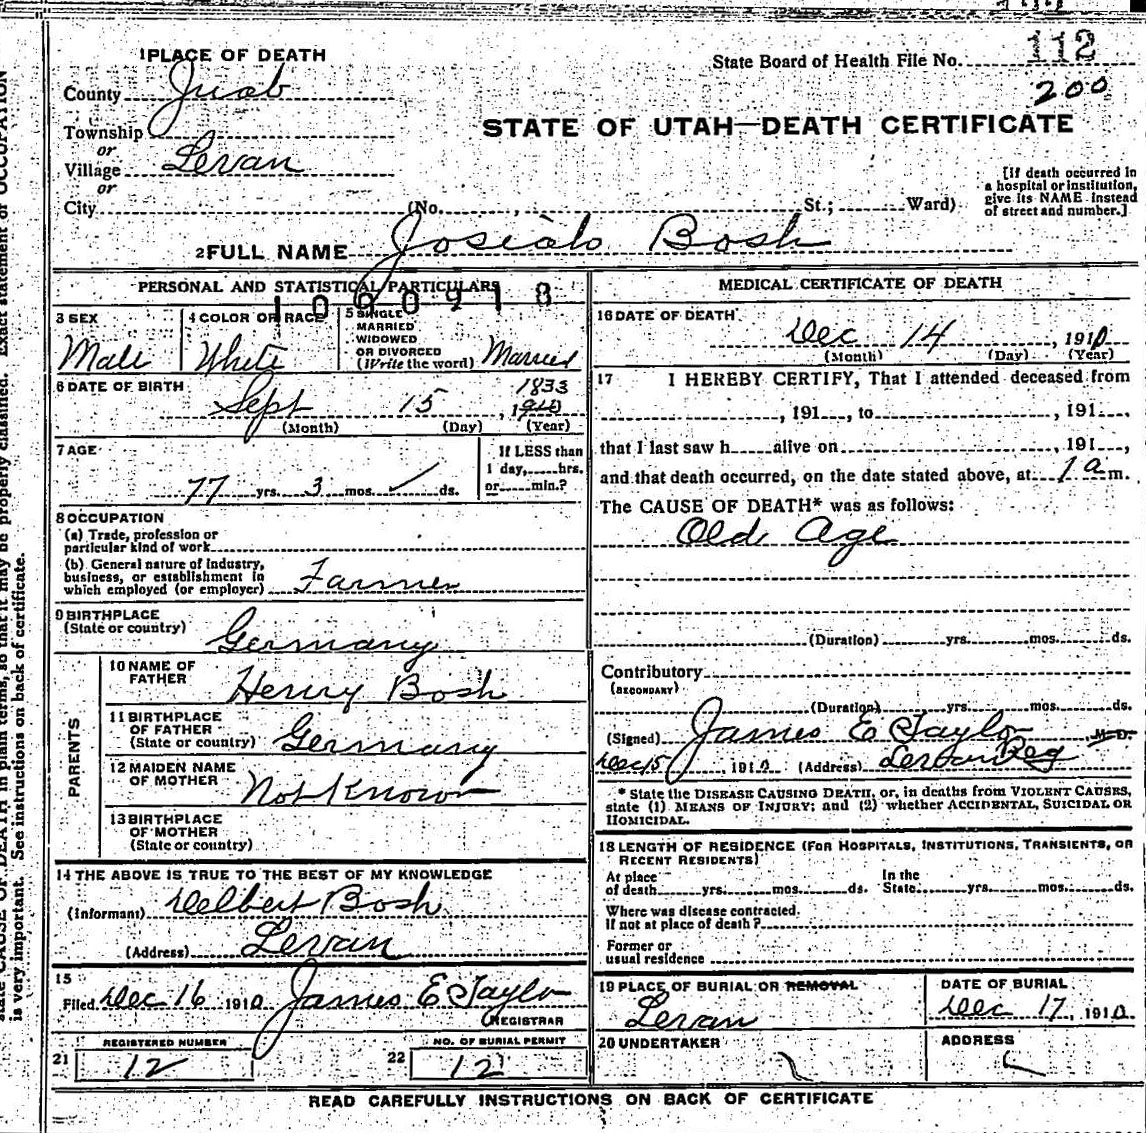 112
1 PLACE OF DEATH
State Board of Health File No.
200
County Juab
STATE OF UTAH—DEATH CERTIFICATE
Township
or
Village Levan
or
[If death occurred in
a hospital or institution,
give its NAME instead
of street and number.]
City (No. St.; Ward)
2 FULL NAME Josiah Bosh
PERSONAL AND STATISTICAL PARTICULARS
3 SEX Male
4 COLOR OR RACE White
5 SINGLE
MARRIED
WIDOWED
OR DIVORCED
(Write the word) Married
6 DATE OF BIRTH
1833
Sept 15, 1910
(Month) (Day) (Year)
7 AGE
If LESS than
1 day, hrs.
or min.?
77 yrs. 3 mos. ✓ ds.
8 OCCUPATION
(a) Trade, profession or
particular kind of work
(b) General nature of industry,
business, or establishment in
which employed (or employer) Farmer
9 BIRTHPLACE
(State or country) Germany
PARENTS
10 NAME OF
FATHER Henry Bosh
11 BIRTHPLACE
OF FATHER
(State or country) Germany
12 MAIDEN NAME
OF MOTHER Not Known
13 BIRTHPLACE
OF MOTHER
(State or country)
14 THE ABOVE IS TRUE TO THE BEST OF MY KNOWLEDGE
(Informant) Delbert Bosh
(Address) Levan
15
Filed Dec 16 1910 James E Taylor
REGISTRAR
REGISTERED NUMBER
21 12
NO. OF BURIAL PERMIT
22 12
MEDICAL CERTIFICATE OF DEATH
16 DATE OF DEATH
Dec 14, 1910
(Month) (Day) (Year)
17 I HEREBY CERTIFY, That I attended deceased from
, 191 , to , 191 ,
that I last saw h alive on , 191 ,
and that death occurred, on the date stated above, at 1 a m.
The CAUSE OF DEATH* was as follows:
Old Age
(Duration) yrs. mos. ds.
Contributory
(SECONDARY)
(Duration) yrs. mos. ds.
(Signed) James E Taylor, M. D.
Reg
Dec 15, 1910 (Address) Levan
* State the DISEASE CAUSING DEATH, or, in deaths from VIOLENT CAUSES,
state (1) MEANS OF INJURY; and (2) whether ACCIDENTAL, SUICIDAL OR
HOMICIDAL.
18 LENGTH OF RESIDENCE (FOR HOSPITALS, INSTITUTIONS, TRANSIENTS, OR
RECENT RESIDENTS)
At place
of death yrs. mos. ds.
In the
State yrs. mos. ds.
Where was disease contracted.
If not at place of death?
Former or
usual residence
19 PLACE OF BURIAL OR REMOVAL
Levan
DATE OF BURIAL
Dec 17, 1910
20 UNDERTAKER
ADDRESS
READ CAREFULLY INSTRUCTIONS ON BACK OF CERTIFICATE
state CAUSE OF DEATH in plain terms, so that it may be properly classified. Exact statement of OCCUPATION
is very important. See instructions on back of certificate.